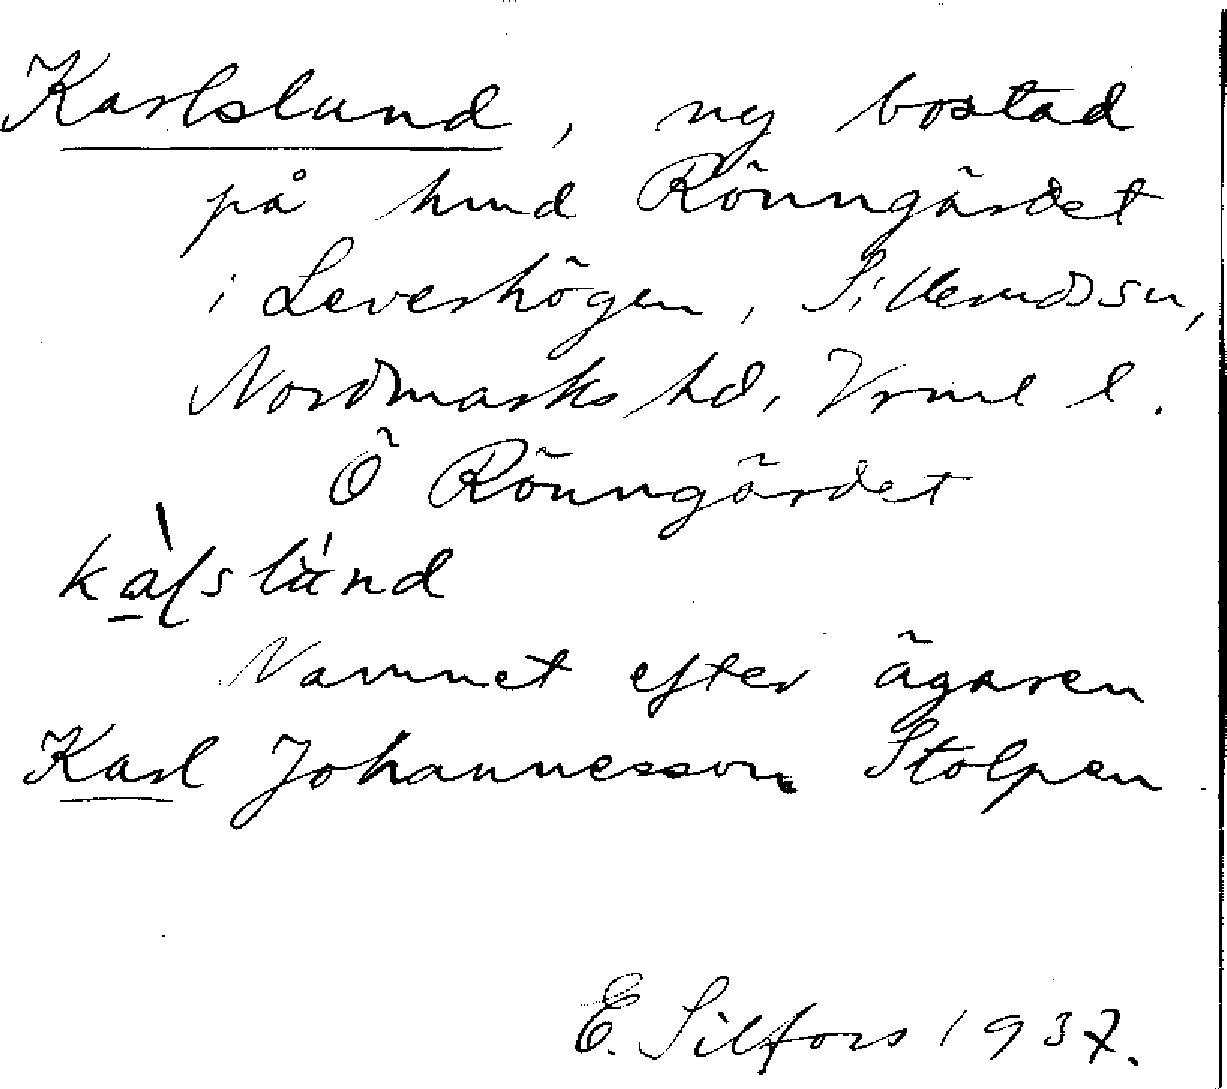 Karlslund, ny bostad
på hmd Rönngärdet
i Leverhögen, Sillerudssn,
Nordmarks hd, Vrml l.
Ö Rönngärdet
Namnet efter ägaren
Karl Johannesson Stolpen
E. Silfors 1937.